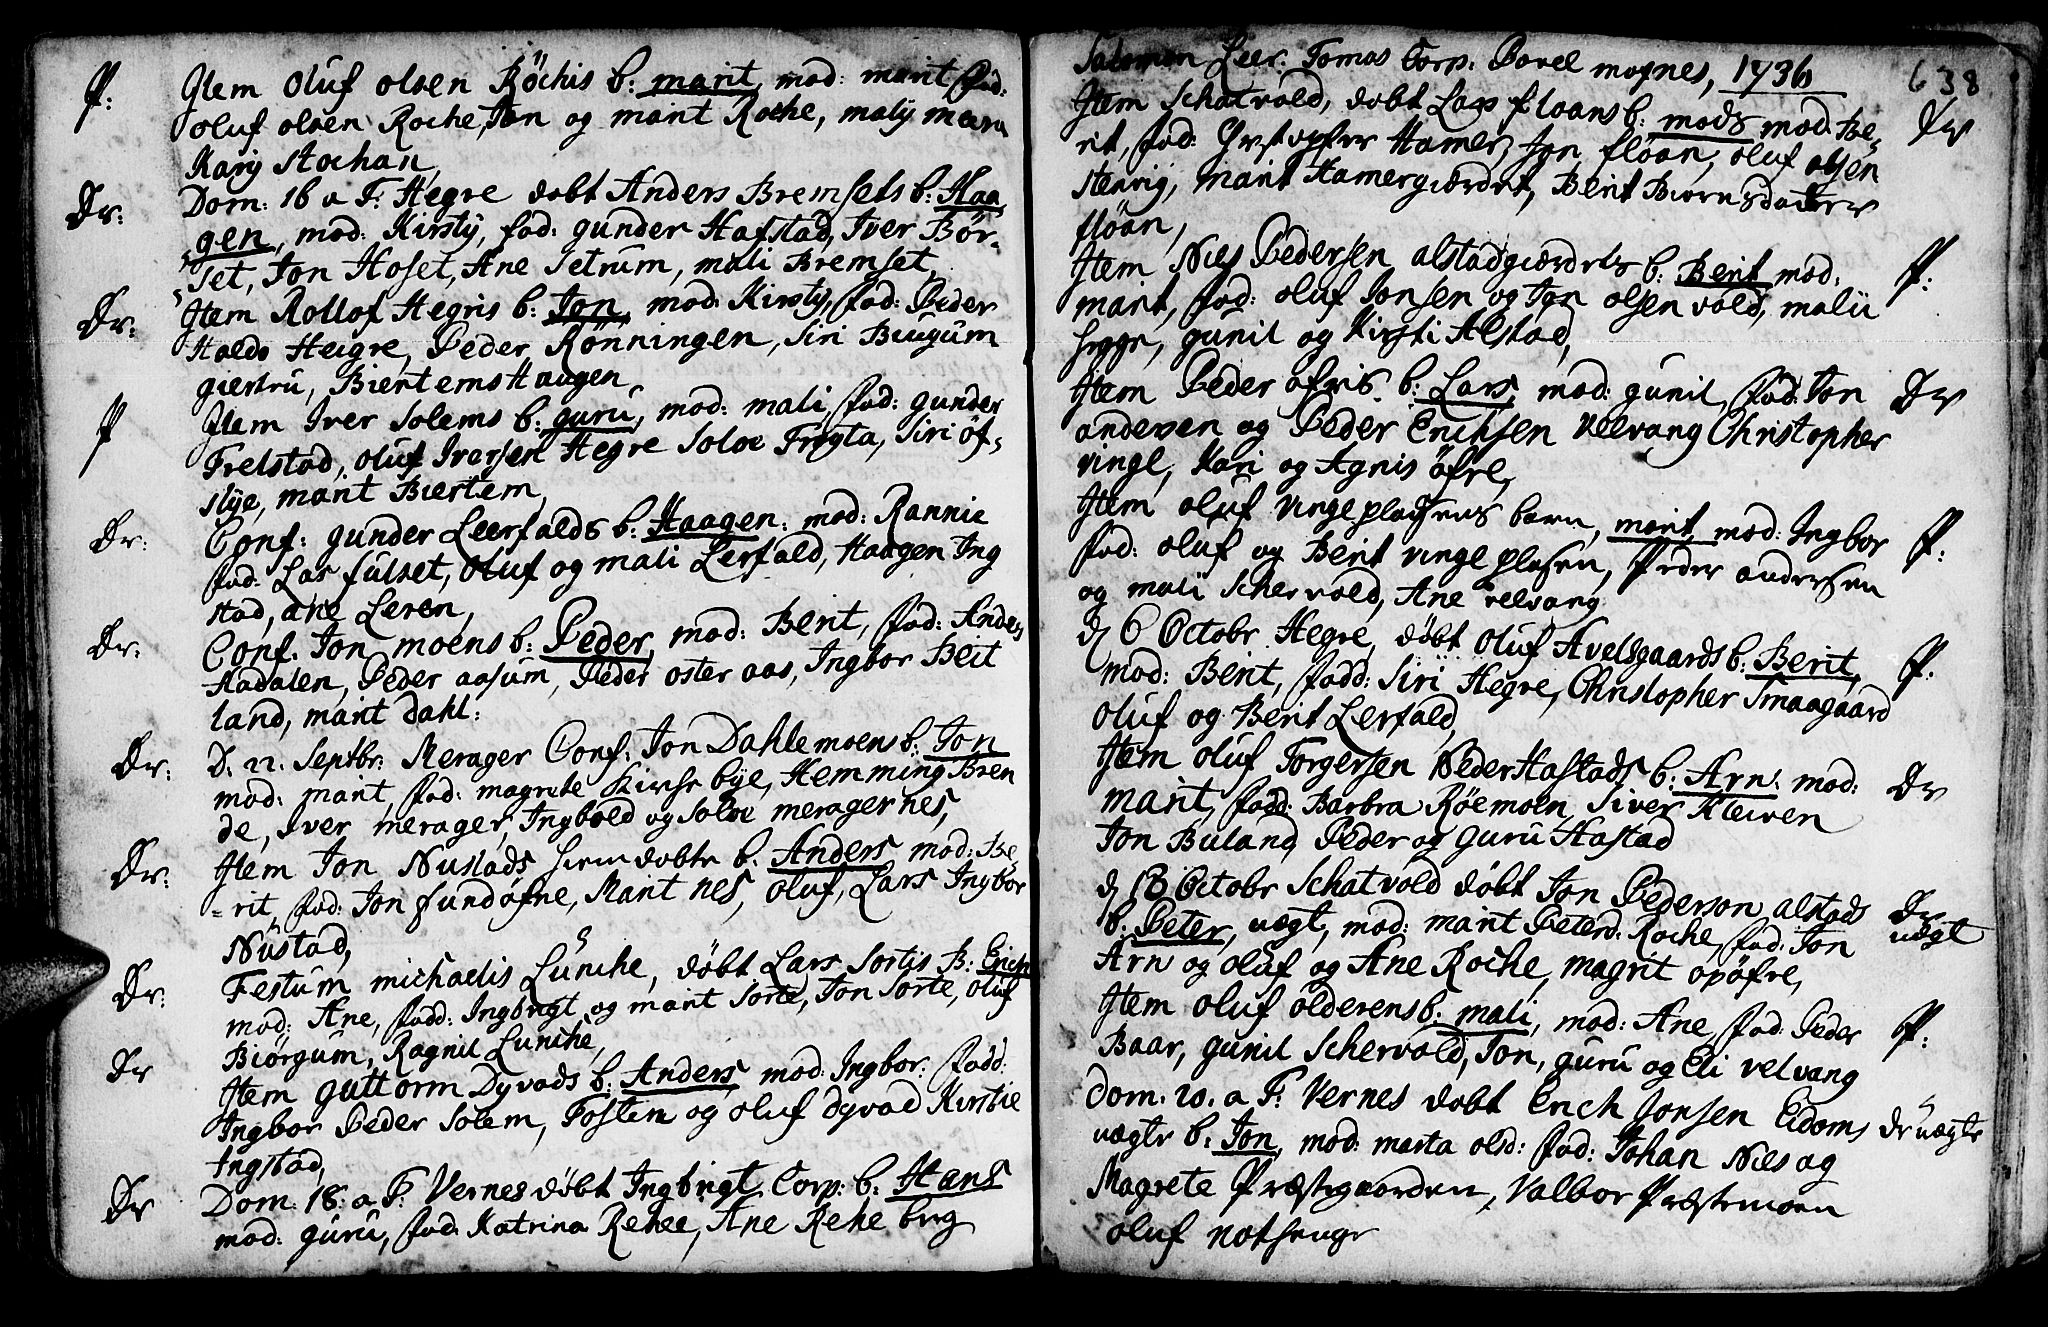 P: Item Oluf olsen Röchis b: marit, mod: marit fad:
oluf olsen Roche, Jon og marit Roche, malj
Karj Stochan,
Dr: Dom: 16 a F. Hegre døbt Anders Bremsets b: Haa
gen, mod: Kirsty, fad: gunder Hafstad, Iver Bör-
set, Jon Hoset, Ane Setrum, mali Bremset,
Dr: Item Rollof Hegris b: Jon, mod: Kirsty, fad: Peder
Halds Hegre, Peder Rönningen, Siri Biugum
giestru, Biertems Haugen
P Item Iver Solems b: guru, mod: mali, fad: gunder
Frelstad, oluf Ivarsen Hegre Solve Frigta, Siri öf-
stye, marit Biertem,
Dr: Conf: gunder Leerfalds b: Haagen: mod: Rannie
fad: Las fulset, Oluf og mali Lerfald, Haagen Ing
stad, ane Leren,
Dr: Conf. Jon moens b: Peder, mod: Berit, fad: Anders
Hadalen, Peder aasum, Peder oster aas, Ingbor Beit
land, marit dahl:
Dr: D. 22. Septbr: Merager Conf: Jon Dahlemoens b: Jon
mod: marit, fad: magrete Kirche bye, Hemming Bren
de, iver merager, Ingbold og Solve meragernes,
Dr: Item Jon Nustads hiemdøbte b. Anders mod: Be-
=rit, fad: Jon fundöfne, Marit nes, oluf, Lars Ingbor
Nüstad,
Dr: Festum michaelis Lünche, døbt Lars Sortis B: Erich
mod: Ane, fadd: Ingbrigt og marit Sorte, Jon Sorte, oluf
Biörgum, Ragnil Lunche,
Dr Item guttorm Dyvads b: Anders mod: Ingbor: fadd:
Ingbor Peder Solem, Tosten og oluf dyvad Kirstie
Ingstad,
Dr Dom. 18. a F. Vernes døbt Ingbrigt Corp: b: Hans
mod: guru, fad: Katrina Rehee, Ane Rehe berg
Salomon Leer. Tomas Corp. Povel mofnes, 1736 638
Item Schatvold, døbt Lars floans b: mads mod. Be- Dr
rit, fad: Christopher Hamer, Jon flöan, oluf olsen
Stenvig, marit Hamergierdet, Berit Biornsdatter
flöan,
Item Niels Pedersen alstadgierdets b: Berit mod: P:
marit, fad: oluf Jonsen og Jon olsen vold, malii
hegge, gunil og Kirsti Alstad,
Item Peder öfris b: Lars, mod: gunil, fad: Jon Dr
andersen og Peder Erichsen Velvang Christopher
vinge, Kari og Agnis öfre,
Item oluf vinge pladsens barn, marit mod: Ingbor P:
fad: oluf og Berit vinge plasen, Peder andersen
og mali Schervold, Ane velvang
d 6 Octobr Hegre, døbt Oluf Avelsgaards b: Berit, P:
mod: Berit, fadd: Siri Hegre, Christopher Smaagaard
oluf og Berit Lerfald,
Item oluf Torgersen NederHastads b: Arn: mod: Dr
marit, fadd: Barbra Röemoen, Siver Kleiven
Jon Buland, Peder og guru Hastad
d 13 Octobr Schatvold døbt Jon Pederson alstads Dr
b: Peter, uægt, mod: marit Petersd: Roche, fad: Jon uægt
Arn og oluf og Ane Roche, magrit opöfre,
Item oluf olderens b: mali, mod: Ane, fad: Peder P:
Baar, gunil Schervold, Jon, guru og Eli velvang
Dom. 20. a F. Vernes døbt Erich Jonsen Eidoms dr uægte
uægte b: Jon, mod: marta olsd: fad: Johan Niels og
Magrete Præstgaarden, Valbor Præstemoen
oluf nothauge